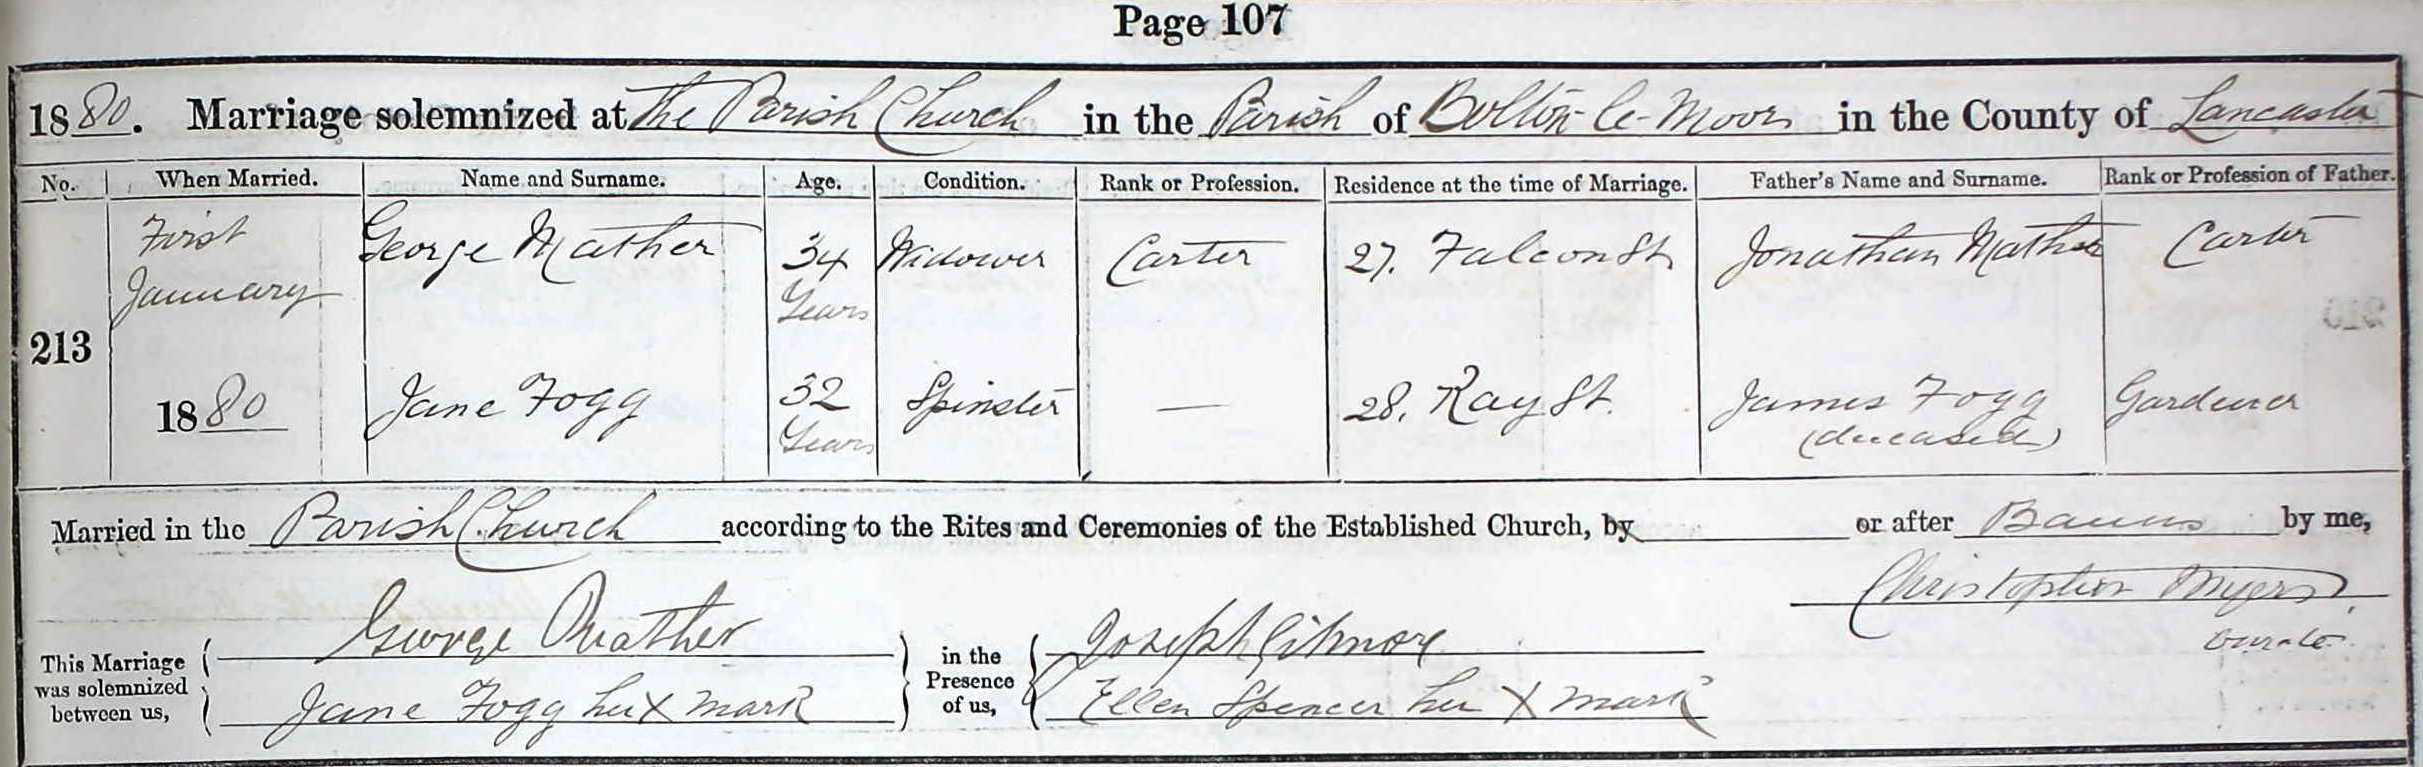 Page 107
1880. Marriage solemnized at The Parish Church in the Parish of Bolton-le-Moors in the County of Lancaster
No. When Married. Name and Surname. Age. Condition. Rank or Profession. Residence at the time of Marriage. Father's Name and Surname. Rank or Profession of Father.
First January George Mather 34 Years Widower Carter 27. Falcon St. Jonathan Mather Carter
213
1880 Jane Fogg 32 Years Spinster — 28. Ray St. James Fogg (deceased) Gardener
Married in the Parish Church according to the Rites and Ceremonies of the Established Church, by or after Banns by me,
Christopher Myers,
Curate.
This Marriage was solemnized between us, George Mather in the Presence of us, Joseph Gilmore
Jane Fogg her X mark Ellen Spencer her X mark